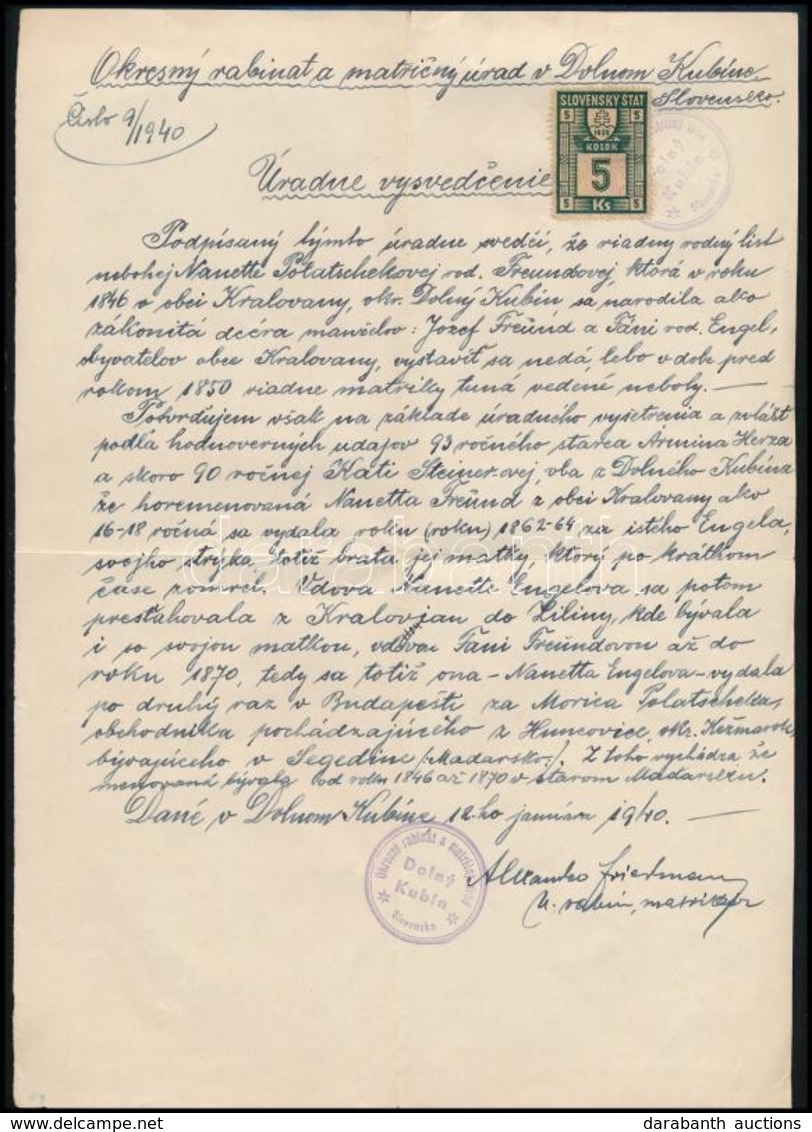 Okresný rabinat a matričný úrad v Dolnom Kubíne
Slovensko.
Číslo 9/1940
SLOVENSKÝ ŠTÁT
5 5
1939
KOLOK
5
5 Ks 5
Dolný
Kubín
Slovensko
Úradne vysvedčenie
Podpísaný týmto úradne svedčí, že riadny rodný list
nebohej Nanetti Polatschekovej rod. Freundovej, ktorá v roku
1846 v obci Kralovany, okr. Dolný Kubín sa narodila ako
zákonitá dcéra manželov: Jozef Freünd a Fáni rod. Engel,
obyvatelov obce Kralovany, vystaviť sa nedá, lebo v dobe pred
rokom 1850 riadne matriky tuná vedené neboly. —
Potvrdujem však na základe úradného vyšetrenia a zvlášt
podľa hodnoverných udajov 93 ročného starca Armina Herza
a skoro 90 ročnej Kati Steiner-ovej, oba z Dolného Kubína
že horemenovaná Nanetta Freünd z obci Kralovany ako
16-18 ročná sa vydala roku (roku) 1862-64 za istého Engela,
svojho strýka, totiž brata jej matky, ktorý po krátkom
čase zomrel. Vdova Nanetti Engelova sa potom
presťahovala z Kralovjan do Žiliny, kde bývala
i so svojou matkou, vdovou Fani Freündovou až do
roku 1870, tedy sa totiž ona – Nanetta Engelova – vydala
po druhý raz v Budapešti za Morica Polatscheka,
obchodníka pochádzajúceho z Huncovice, okr. Kežmarok,
bývajúceho v Segedíne /:Madarsko:/. Z toho vychádza, že
menovaná bývala od roku 1846 až 1870 v starom Madarsku.
Dané v Dolnom Kubíne 12-ho januára 1940. —
Okresný rabinát a matričný úrad
Dolný
Kubín
Slovensko
Alexander Friedmann
rabín, matrikár
darabanth
darabanth auctions